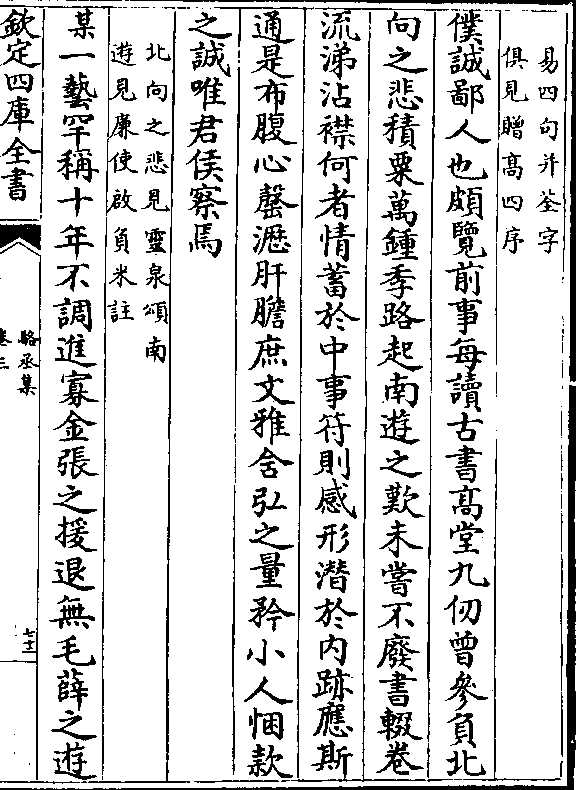 易四句并荃字
俱見贈髙四序
僕誠鄙人也頗覽前事每讀古書髙堂九仞曾參負北
向之悲積粟萬鍾季路起南遊之歎未嘗不廢書輟卷
流涕沾襟何者情蓄於中事符則感形潛於内跡應斯
通是布腹心罄瀝肝膽庶文雅含弘之量矜小人悃款
之誠唯君侯察焉
北向之悲見靈泉頌南
遊見廉使啟負米註
某一藝罕稱十年不調進寡金張之援退無毛薛之遊
欽定四庫全書
駱丞集
卷三